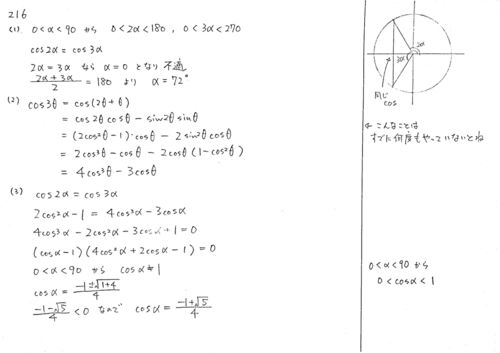 216
(1) 0<α<90 から 0<2α<180, 0<3α<270
cos2α = cos3α
2α = 3α なら α=0 となり 不適
(2α+3α)/2 = 180 より α = 72°
(2) cos3θ = cos(2θ+θ)
= cos2θ cosθ - sin2θ sinθ
= (2cos²θ-1)·cosθ - 2sin²θ cosθ
= 2cos³θ - cosθ - 2cosθ(1-cos²θ)
= 4cos³θ - 3cosθ
(3) cos2α = cos3α
2cos²α - 1 = 4cos³α - 3cosα
4cos³α - 2cos²α - 3cosα + 1 = 0
(cosα-1)(4cos²α+2cosα-1) = 0
0<α<90 から cosα≠1
cosα = (-1±√(1+4))/4
(-1-√5)/4 < 0 なので cosα = (-1+√5)/4
2α
3α
同じ
cos
こんなことは
すでに何度もやっていないとね
0<α<90 から
0<cosα<1